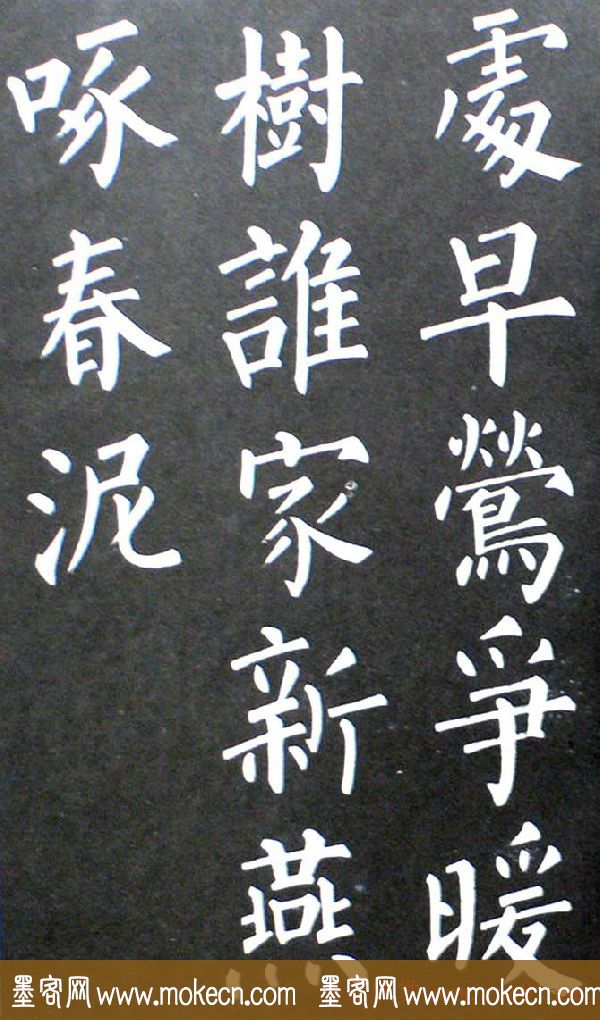 處早鶯爭暖
樹誰家新燕
啄春泥
墨客网 www.mokecn.com 墨客网 www.mokecn.com